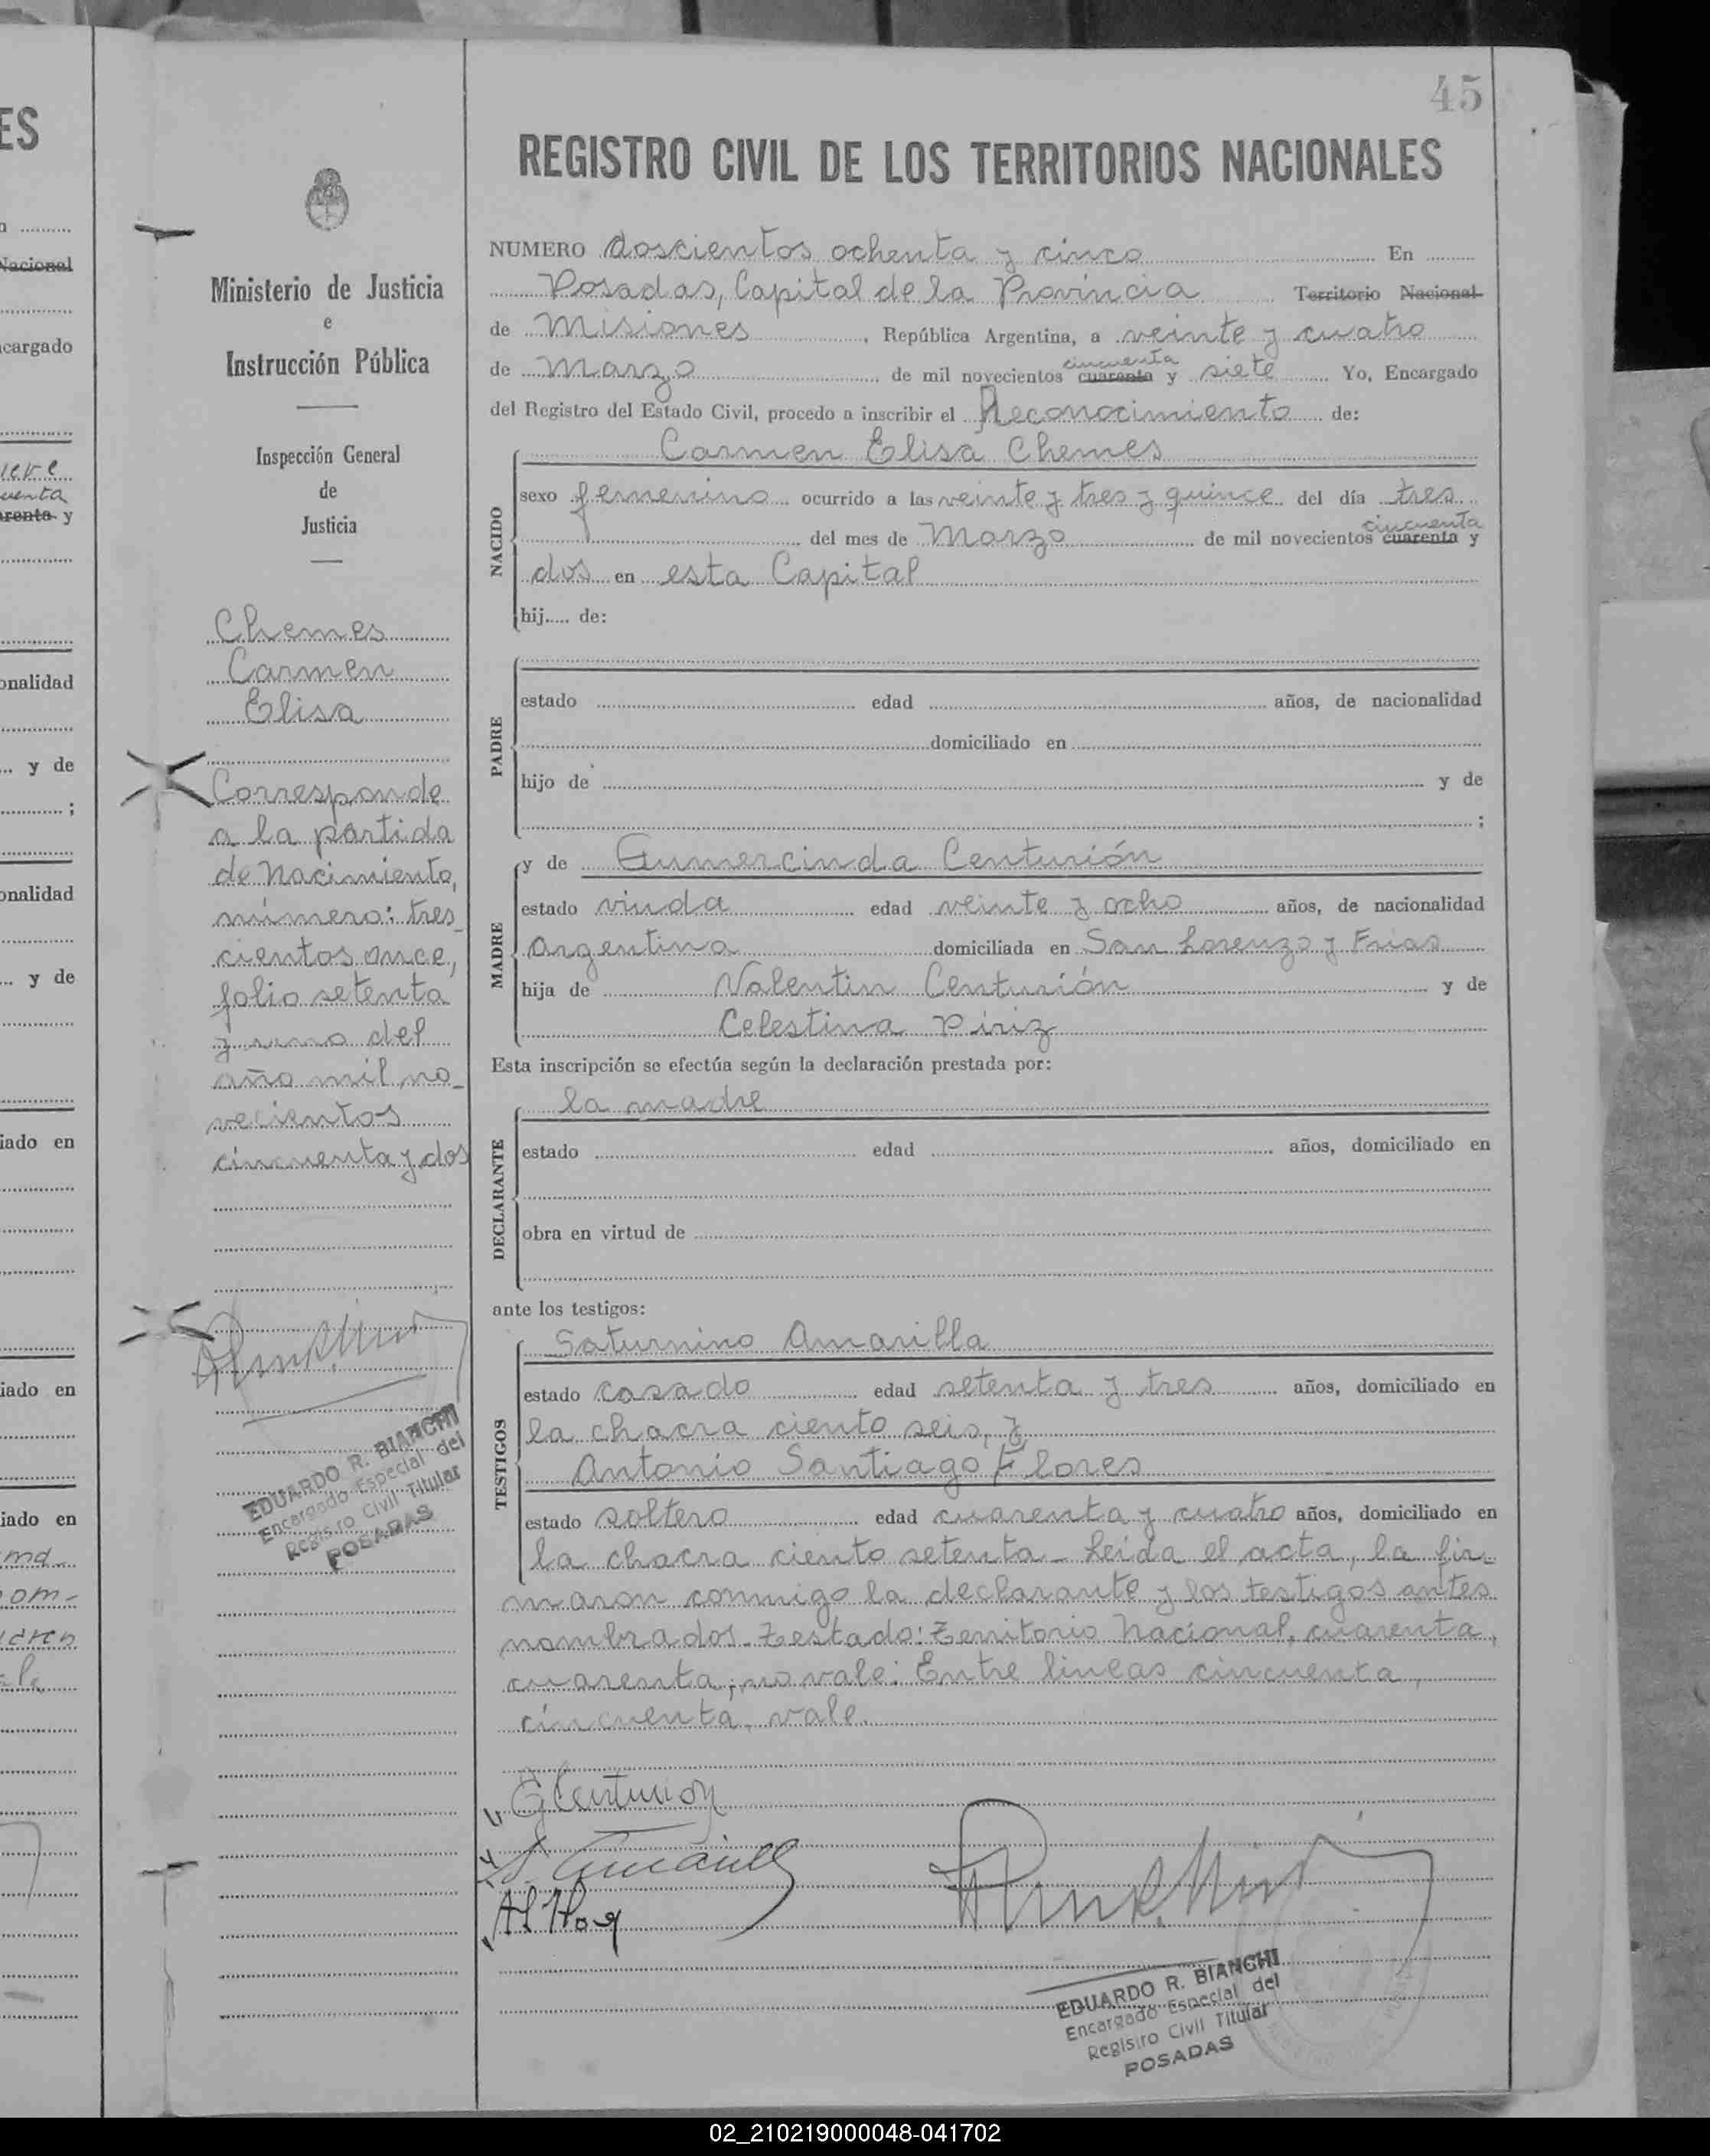 45
REGISTRO CIVIL DE LOS TERRITORIOS NACIONALES
Ministerio de Justicia
e
Instrucción Pública
Inspección General
de
Justicia
Chemes
Carmen
Elisa
Corresponde
a la partida
de Nacimiento,
número: tres
cientos once,
folio setenta
y uno del
año mil no-
vecientos
cincuenta y dos
EDUARDO R. BIANCHI
Encargado Especial del
Registro Civil Titular
POSADAS
NUMERO doscientos ochenta y cinco En
Posadas, Capital de la Provincia Territorio Nacional
de Misiones, República Argentina, a veinte y cuatro
de Marzo de mil novecientos cuarenta cincuenta y siete Yo, Encargado
del Registro del Estado Civil, procedo a inscribir el Reconocimiento de:
Carmen Elisa Chemes
NACIDO
sexo femenino ocurrido a las veinte y tres y quince del día tres
del mes de Marzo de mil novecientos cuarenta cincuenta y
dos en esta Capital
hij..... de:
PADRE
estado edad años, de nacionalidad
domiciliado en
hijo de y de
;
MADRE
y de Gumercinda Centurión
estado viuda edad veinte y ocho años, de nacionalidad
argentina domiciliada en San Lorenzo y Frias
hija de Valentin Centurión y de
Celestina Píriz
Esta inscripción se efectúa según la declaración prestada por:
la madre
DECLARANTE
estado edad años, domiciliado en
obra en virtud de
ante los testigos:
TESTIGOS
Saturnino Amarilla
estado casado edad setenta y tres años, domiciliado en
la chacra ciento seis, y
Antonio Santiago Flores
estado soltero edad cuarenta y cuatro años, domiciliado en
la chacra ciento setenta - Leida el acta, la fir-
maron conmigo la declarante y los testigos antes
nombrados. Testado: Territorio Nacional, cuarenta,
cuarenta; no vale: Entre lineas cincuenta,
cincuenta, vale.
G Centurion
S. Amarilla
EDUARDO R. BIANCHI
Encargado Especial del
Registro Civil Titular
POSADAS
ES
Nacional
encargado
onalidad
y de
;
onalidad
y de
iado en
iado en
iado en
02_210219000048-041702